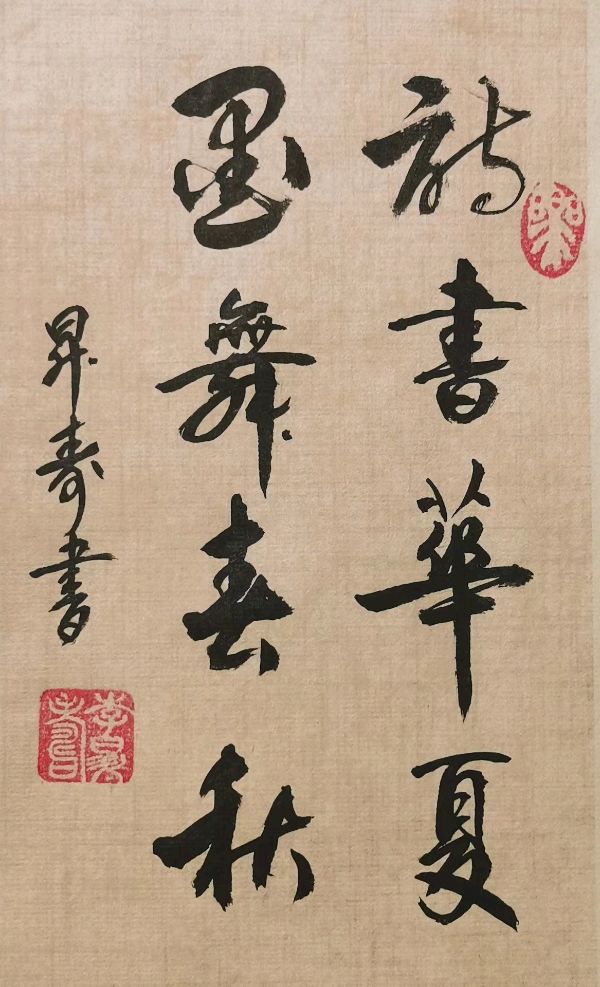 詩書華夏
墨舞春秋
昇壽書